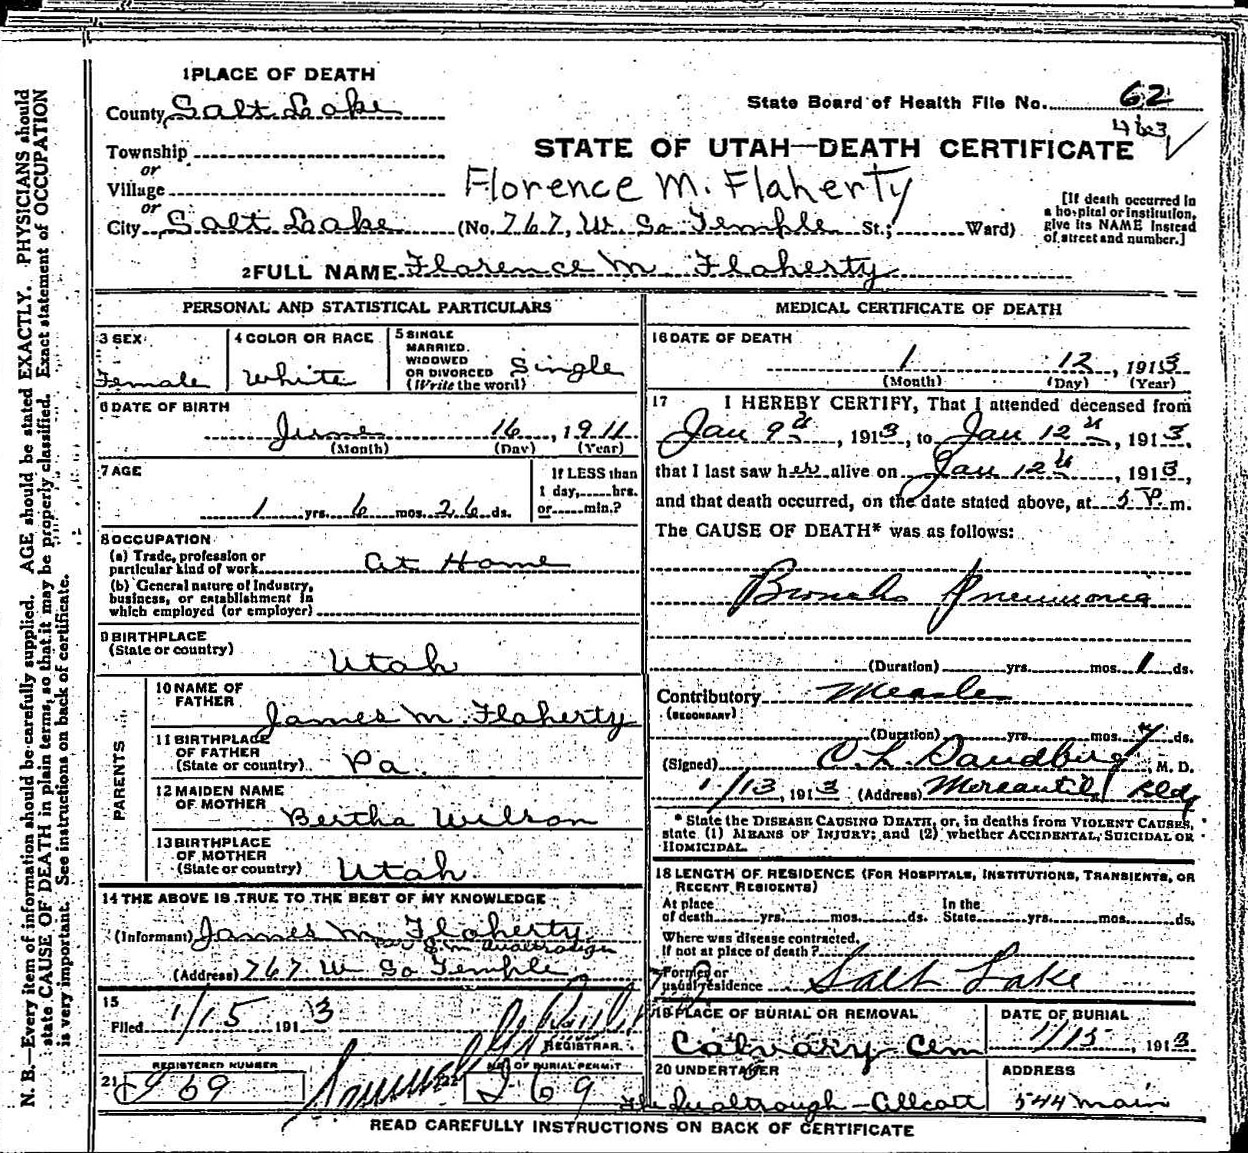 1 PLACE OF DEATH
County Salt Lake
State Board of Health File No. 62
Township
or
Village
or
City Salt Lake (No. 767, W. So Temple St.; Ward)
STATE OF UTAH—DEATH CERTIFICATE
Florence M. Flaherty
[If death occurred in
a hospital or institution,
give its NAME instead
of street and number.]
2 FULL NAME Florence M Flaherty
PERSONAL AND STATISTICAL PARTICULARS
3 SEX
Female
4 COLOR OR RACE
White
5 SINGLE
MARRIED
WIDOWED
OR DIVORCED
(Write the word)
Single
6 DATE OF BIRTH
June 16, 1911
(Month) (Day) (Year)
7 AGE
1 yrs. 6 mos. 26 ds.
If LESS than
1 day, hrs.
or min.?
8 OCCUPATION
(a) Trade, profession or
particular kind of work At Home
(b) General nature of Industry,
business, or establishment in
which employed (or employer)
9 BIRTHPLACE
(State or country)
Utah
PARENTS
10 NAME OF
FATHER
James M. Flaherty
11 BIRTHPLACE
OF FATHER
(State or country) Pa.
12 MAIDEN NAME
OF MOTHER
Bertha Wilson
13 BIRTHPLACE
OF MOTHER
(State or country) Utah
14 THE ABOVE IS TRUE TO THE BEST OF MY KNOWLEDGE
(Informant) James M Flaherty
(Address) 767 W So Temple
15
Filed 1/15 1913
REGISTRAR.
REGISTERED NUMBER
21
69
22
NO. OF BURIAL PERMIT
269
MEDICAL CERTIFICATE OF DEATH
16 DATE OF DEATH
1 12, 1913
(Month) (Day) (Year)
17 I HEREBY CERTIFY, That I attended deceased from
Jan 9th, 1913, to Jan 12th, 1913,
that I last saw her alive on Jan 12th, 1913,
and that death occurred, on the date stated above, at 5 P. m.
The CAUSE OF DEATH* was as follows:
Broncho Pneumonia
(Duration) yrs. mos. 1 ds.
Contributory Measles
(SECONDARY)
(Duration) yrs. mos. 4 ds.
(Signed) O. L. Sandberg, M. D.
1/13, 1913 (Address) Mercantile Bldg
* State the DISEASE CAUSING DEATH, or, in deaths from VIOLENT CAUSES,
state (1) MEANS OF INJURY; and (2) whether ACCIDENTAL, SUICIDAL OR
HOMICIDAL.
18 LENGTH OF RESIDENCE (FOR HOSPITALS, INSTITUTIONS, TRANSIENTS, OR
RECENT RESIDENTS)
At place
of death yrs. mos. ds.
In the
State yrs. mos. ds.
Where was disease contracted,
If not at place of death?
Former or
usual residence Salt Lake
19 PLACE OF BURIAL OR REMOVAL
Calvary Cem
DATE OF BURIAL
1/15, 1913
20 UNDERTAKER
ADDRESS
544 Main
READ CAREFULLY INSTRUCTIONS ON BACK OF CERTIFICATE
N. B.—Every item of information should be carefully supplied. AGE should be stated EXACTLY. PHYSICIANS should
state CAUSE OF DEATH in plain terms, so that it may be properly classified. Exact statement of OCCUPATION
is very important. See instructions on back of certificate.